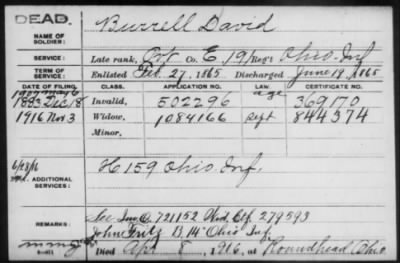 DEAD.
NAME OF SOLDIER: Burrell David
SERVICE: Late rank, Co. E, 191 Reg't Ohio Inf
TERM OF SERVICE: Enlisted Feb. 27, 1865 Discharged June 19, 1865
DATE OF FILING. CLASS. APPLICATION NO. LAW. CERTIFICATE NO.
1907 May 6 age
1883 Dec 18 Invalid, 502296 369170
1916 Nov 3 Widow, 1084166 Sept 844374
Minor,
ADDITIONAL SERVICES: H 159 Ohio Inf.
REMARKS: See Inv. C. 721152 Wid. Ctf 279593
John Fritz B, 14" Ohio Inf.
Died Apr. 8, 1916, at Roundhead Ohio